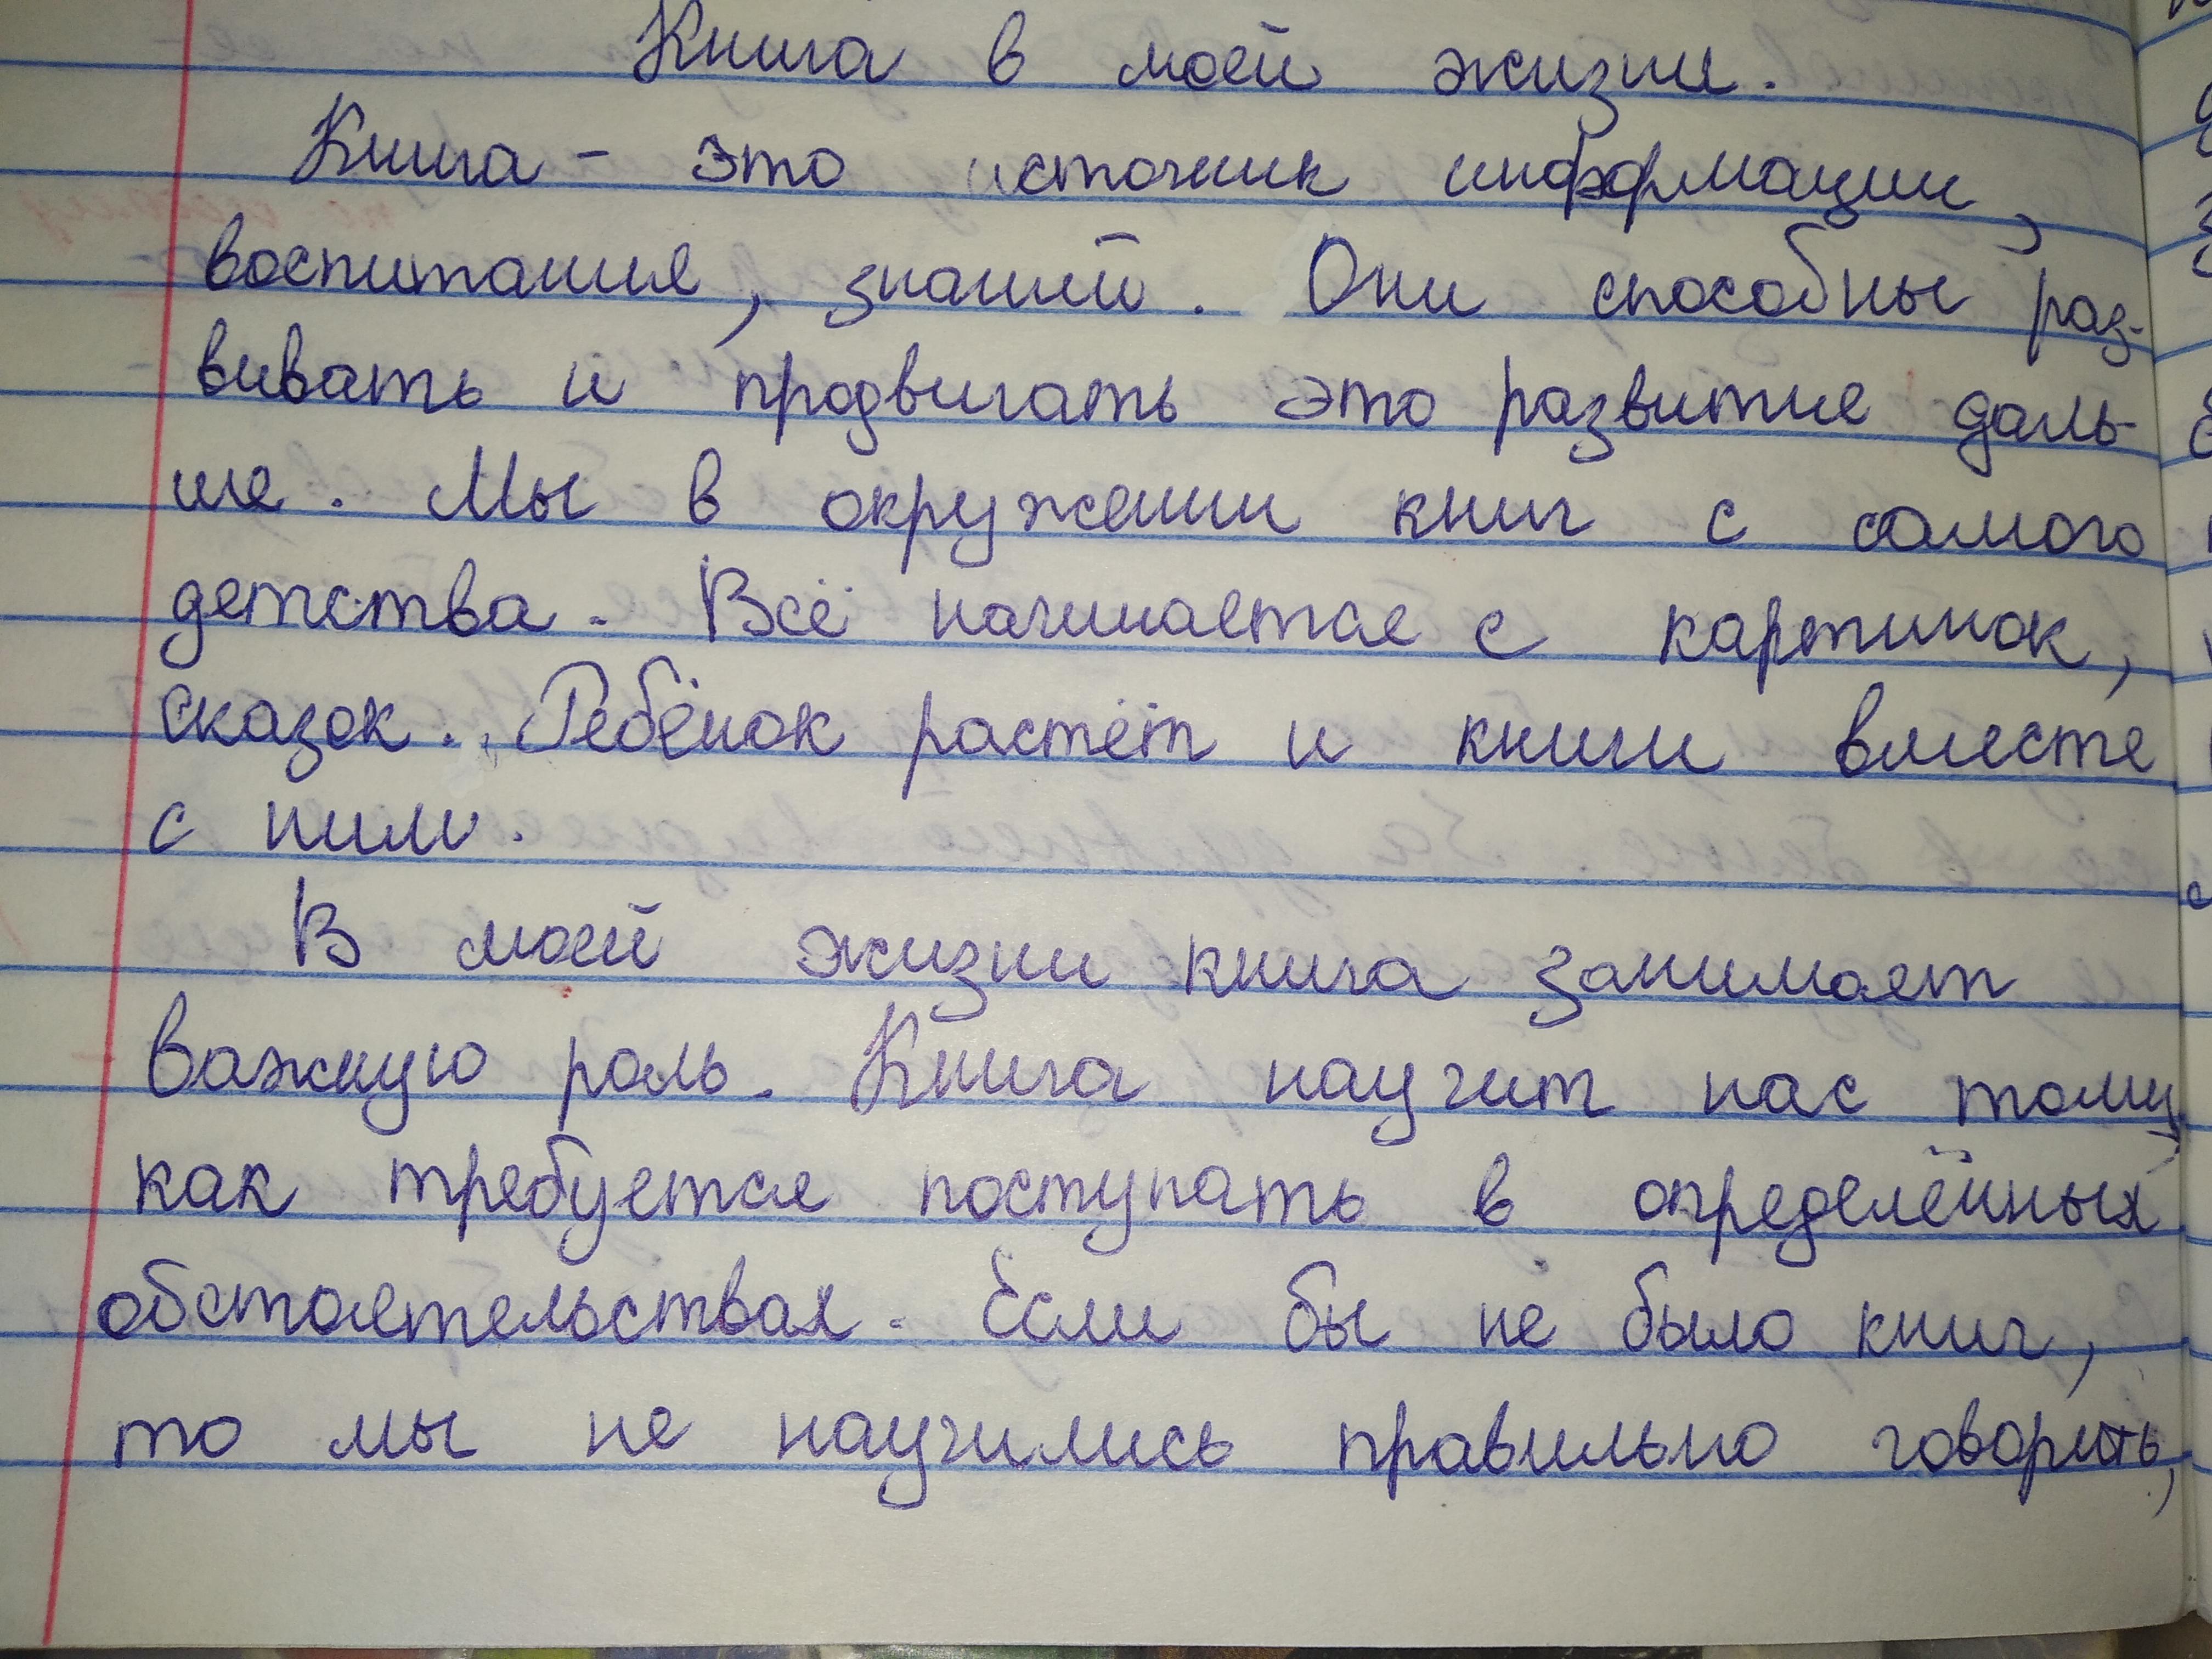 Книга в моей жизни.
Книга - это источник информации,
воспитания, знаний. Они способны раз-
вивать и продвигать это развитие даль-
ше. Мы в окружении книг с самого
детства. Всё начинается с картинок,
сказок. Ребёнок растёт и книги вместе
с ним.
В моей жизни книга занимает
важную роль. Книга научит нас тому,
как требуется поступать в определённых
обстоятельствах. Если бы не было книг,
то мы не научились правильно говорить,